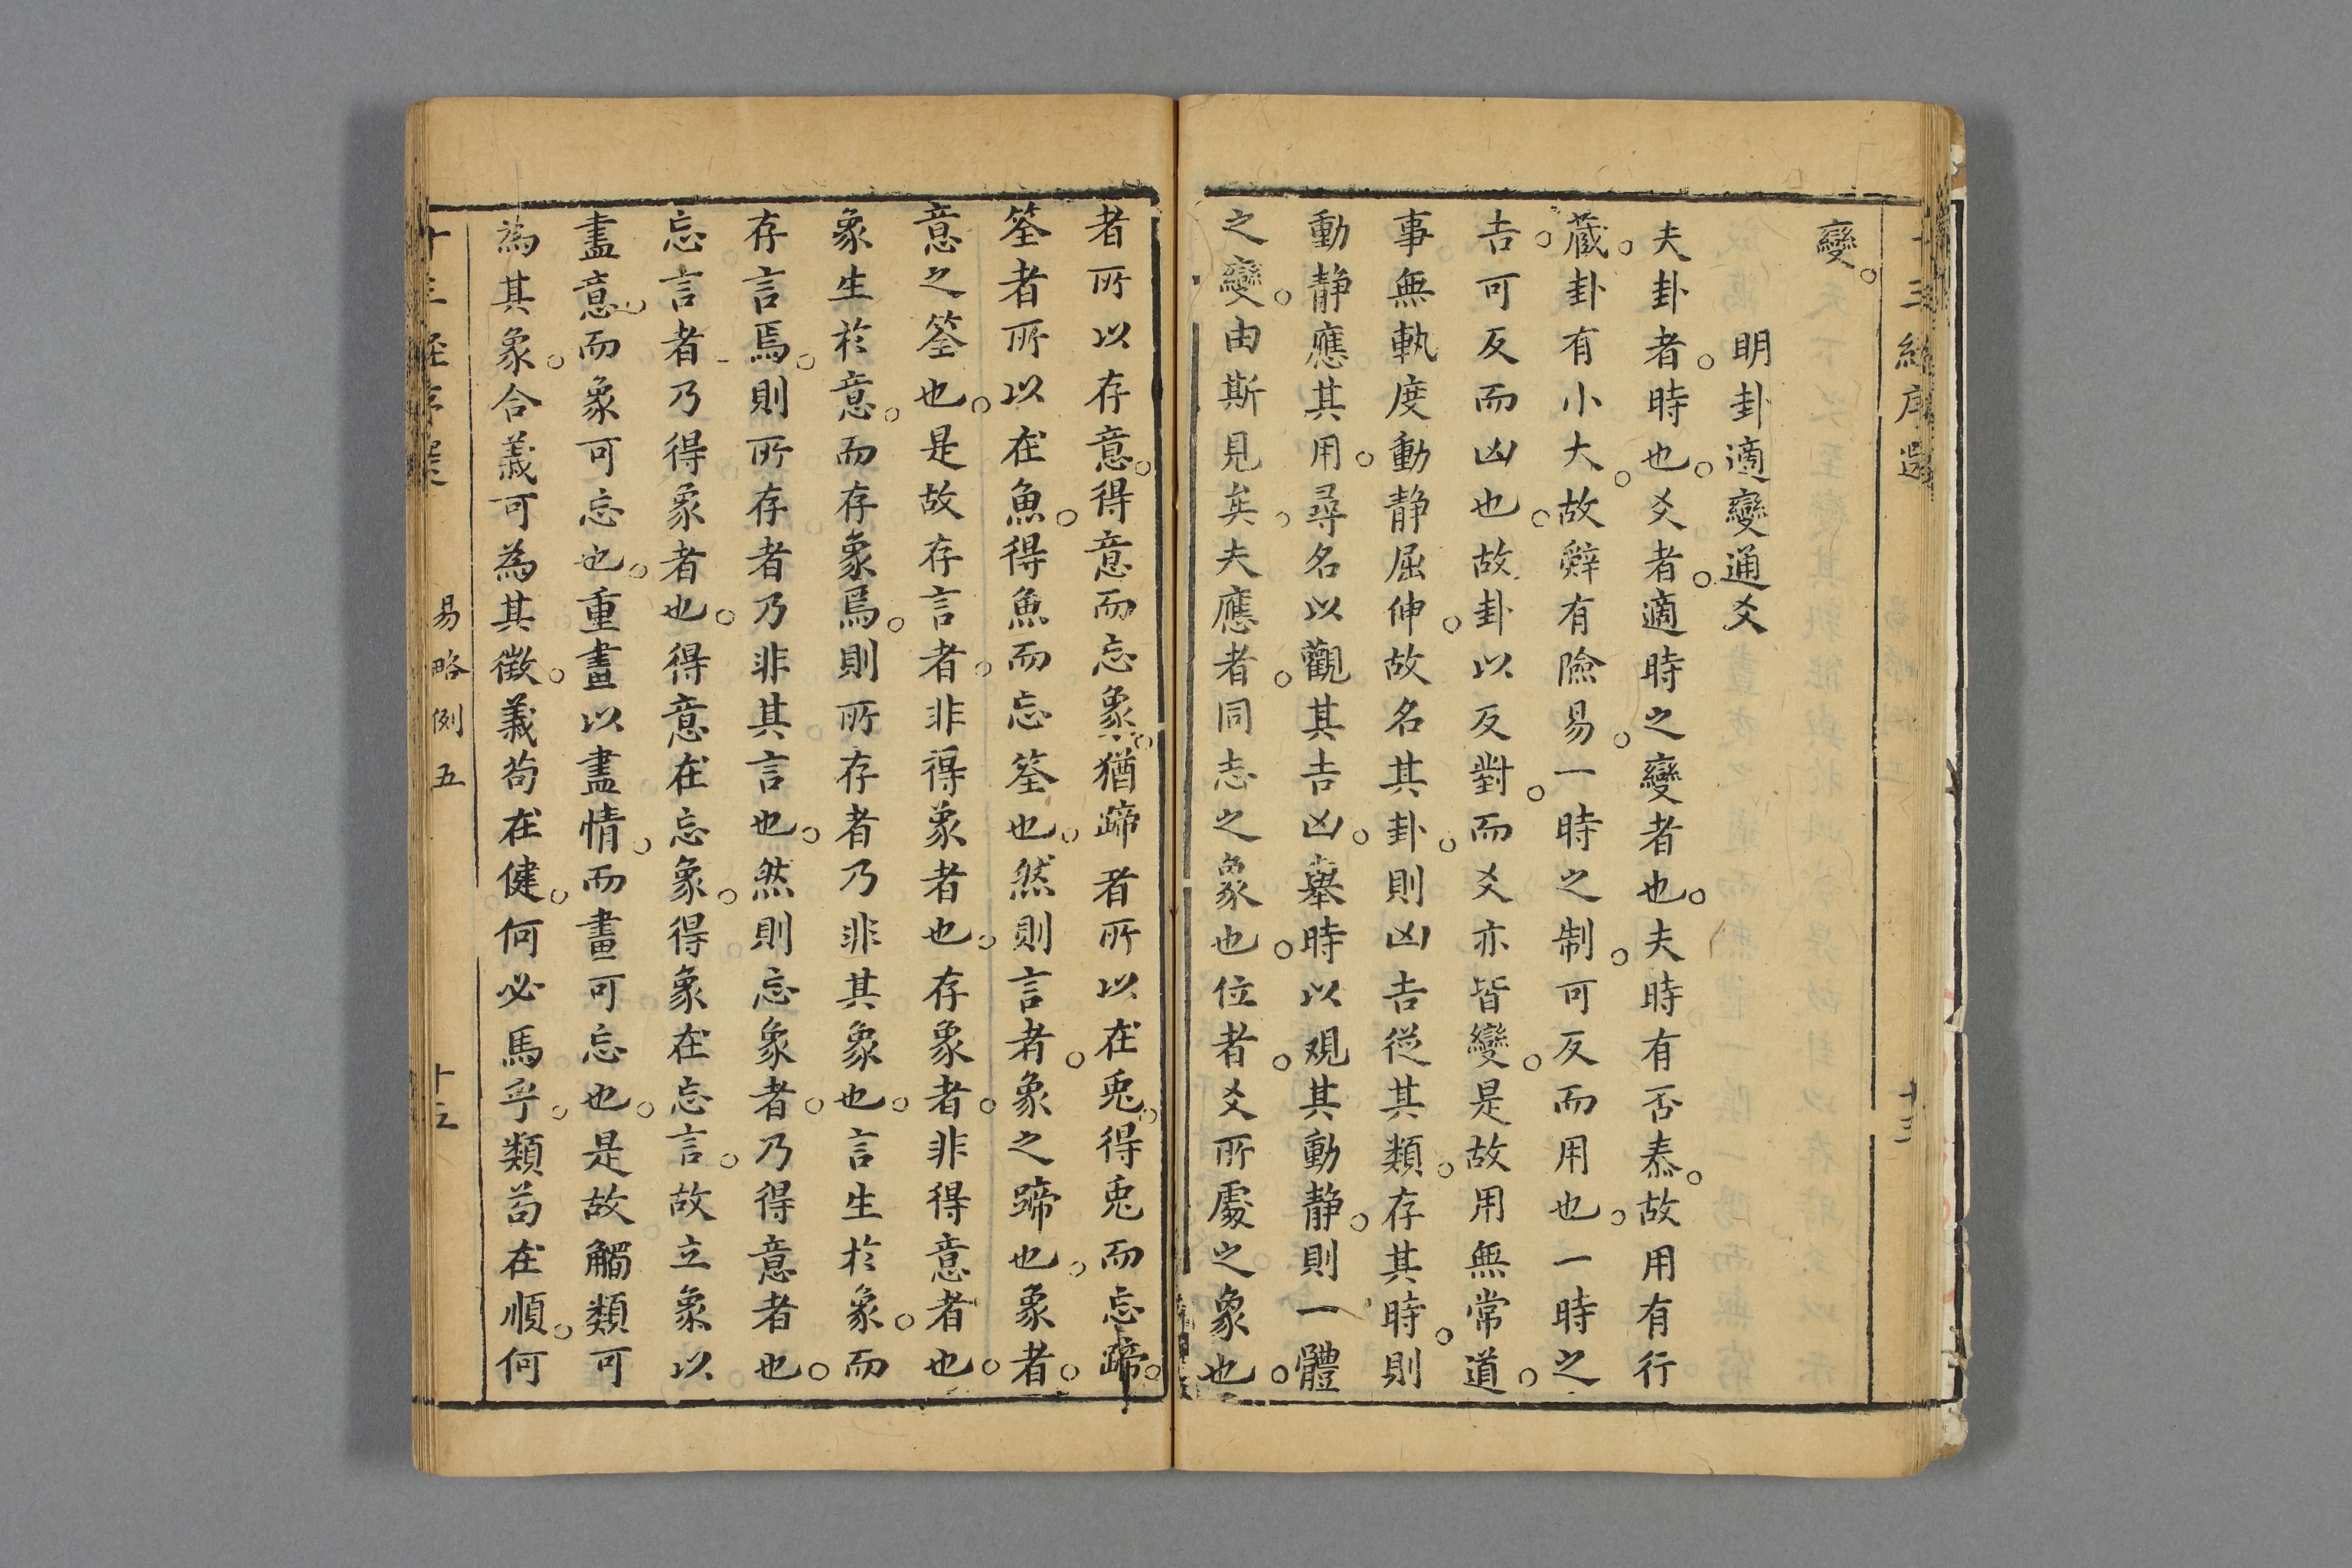 變。
明卦適變通爻
夫卦者。時也。爻者。適時之變者也。夫時有否泰。故用有行
藏。卦有小大。故辭有險易。一時之制。可反而用也。一時之
吉。可反而凶也。故卦以反對。而爻亦皆變。是故用無常道。
事無軌度動静屈伸。故名其卦。則凶吉從其類。存其時。則
動静應其用。尋名以觀其吉凶。舉時以观其動静。則一體
之變。由斯見矣。夫應者。同志之象也。位者。爻所處之象也。
者所以存意。得意而忘象。猶蹄者所以在兎。得兎而忘蹄。
筌者所以在魚。得魚而忘筌也。然則言者。象之蹄也。象者。
意之筌也。是故存言者。非得象者也。存象者。非得意者也。
象生於意。而存象焉。則所存者乃非其象也。言生於象。而
存言焉。則所存者乃非其言也。然則忘象者。乃得意者也。
忘言者乃得象者也。得意在忘象。得象在忘言。故立象以
盡意。而象可忘也。重畫以盡情。而畫可忘也。是故觸類可
為其象。合義可為其徵。義苟在健。何必馬乎。類苟在順。何
易略例 五